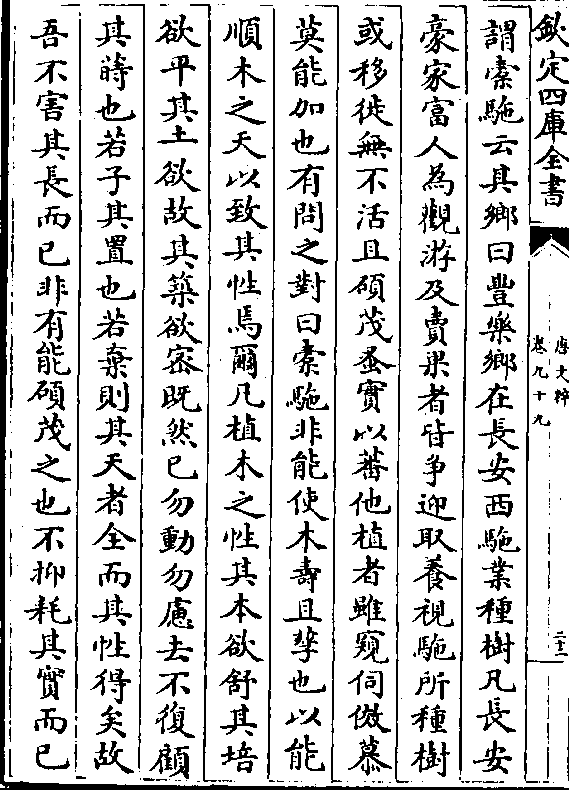 欽定四庫全書
唐文粹
卷九十九
二十二
謂橐駞云其鄉曰豐樂鄉在長安西駞業種樹凡長安
豪家富人為觀游及賣果者皆爭迎取養視駞所種樹
或移徙無不活且碩茂蚤實以蕃他植者雖窺伺傚慕
莫能加也有問之對曰橐駞非能使木壽且孳也以能
順木之天以致其性焉爾凡植木之性其本欲舒其培
欲平其土欲故其築欲密既然已勿動勿慮去不復顧
其蒔也若子其置也若棄則其天者全而其性得矣故
吾不害其長而已非有能碩茂之也不抑耗其實而已